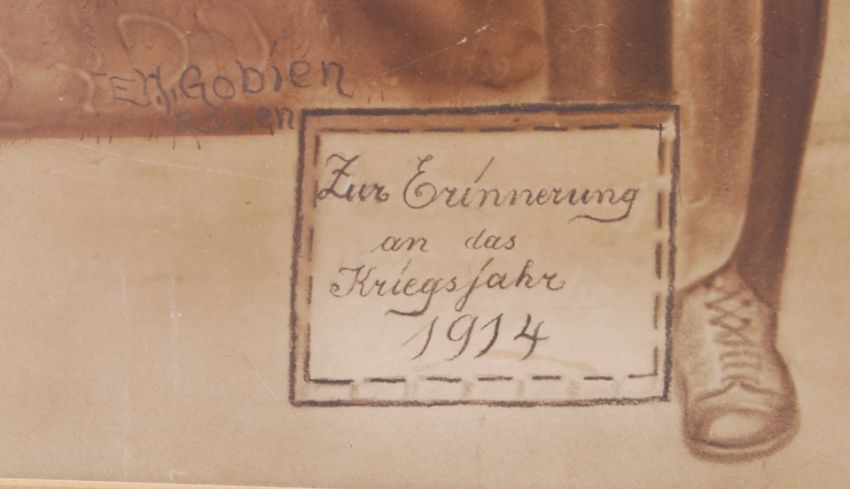 EH. Gobien
Essen
Zur Erinnerung
an das
Kriegsjahr
1914